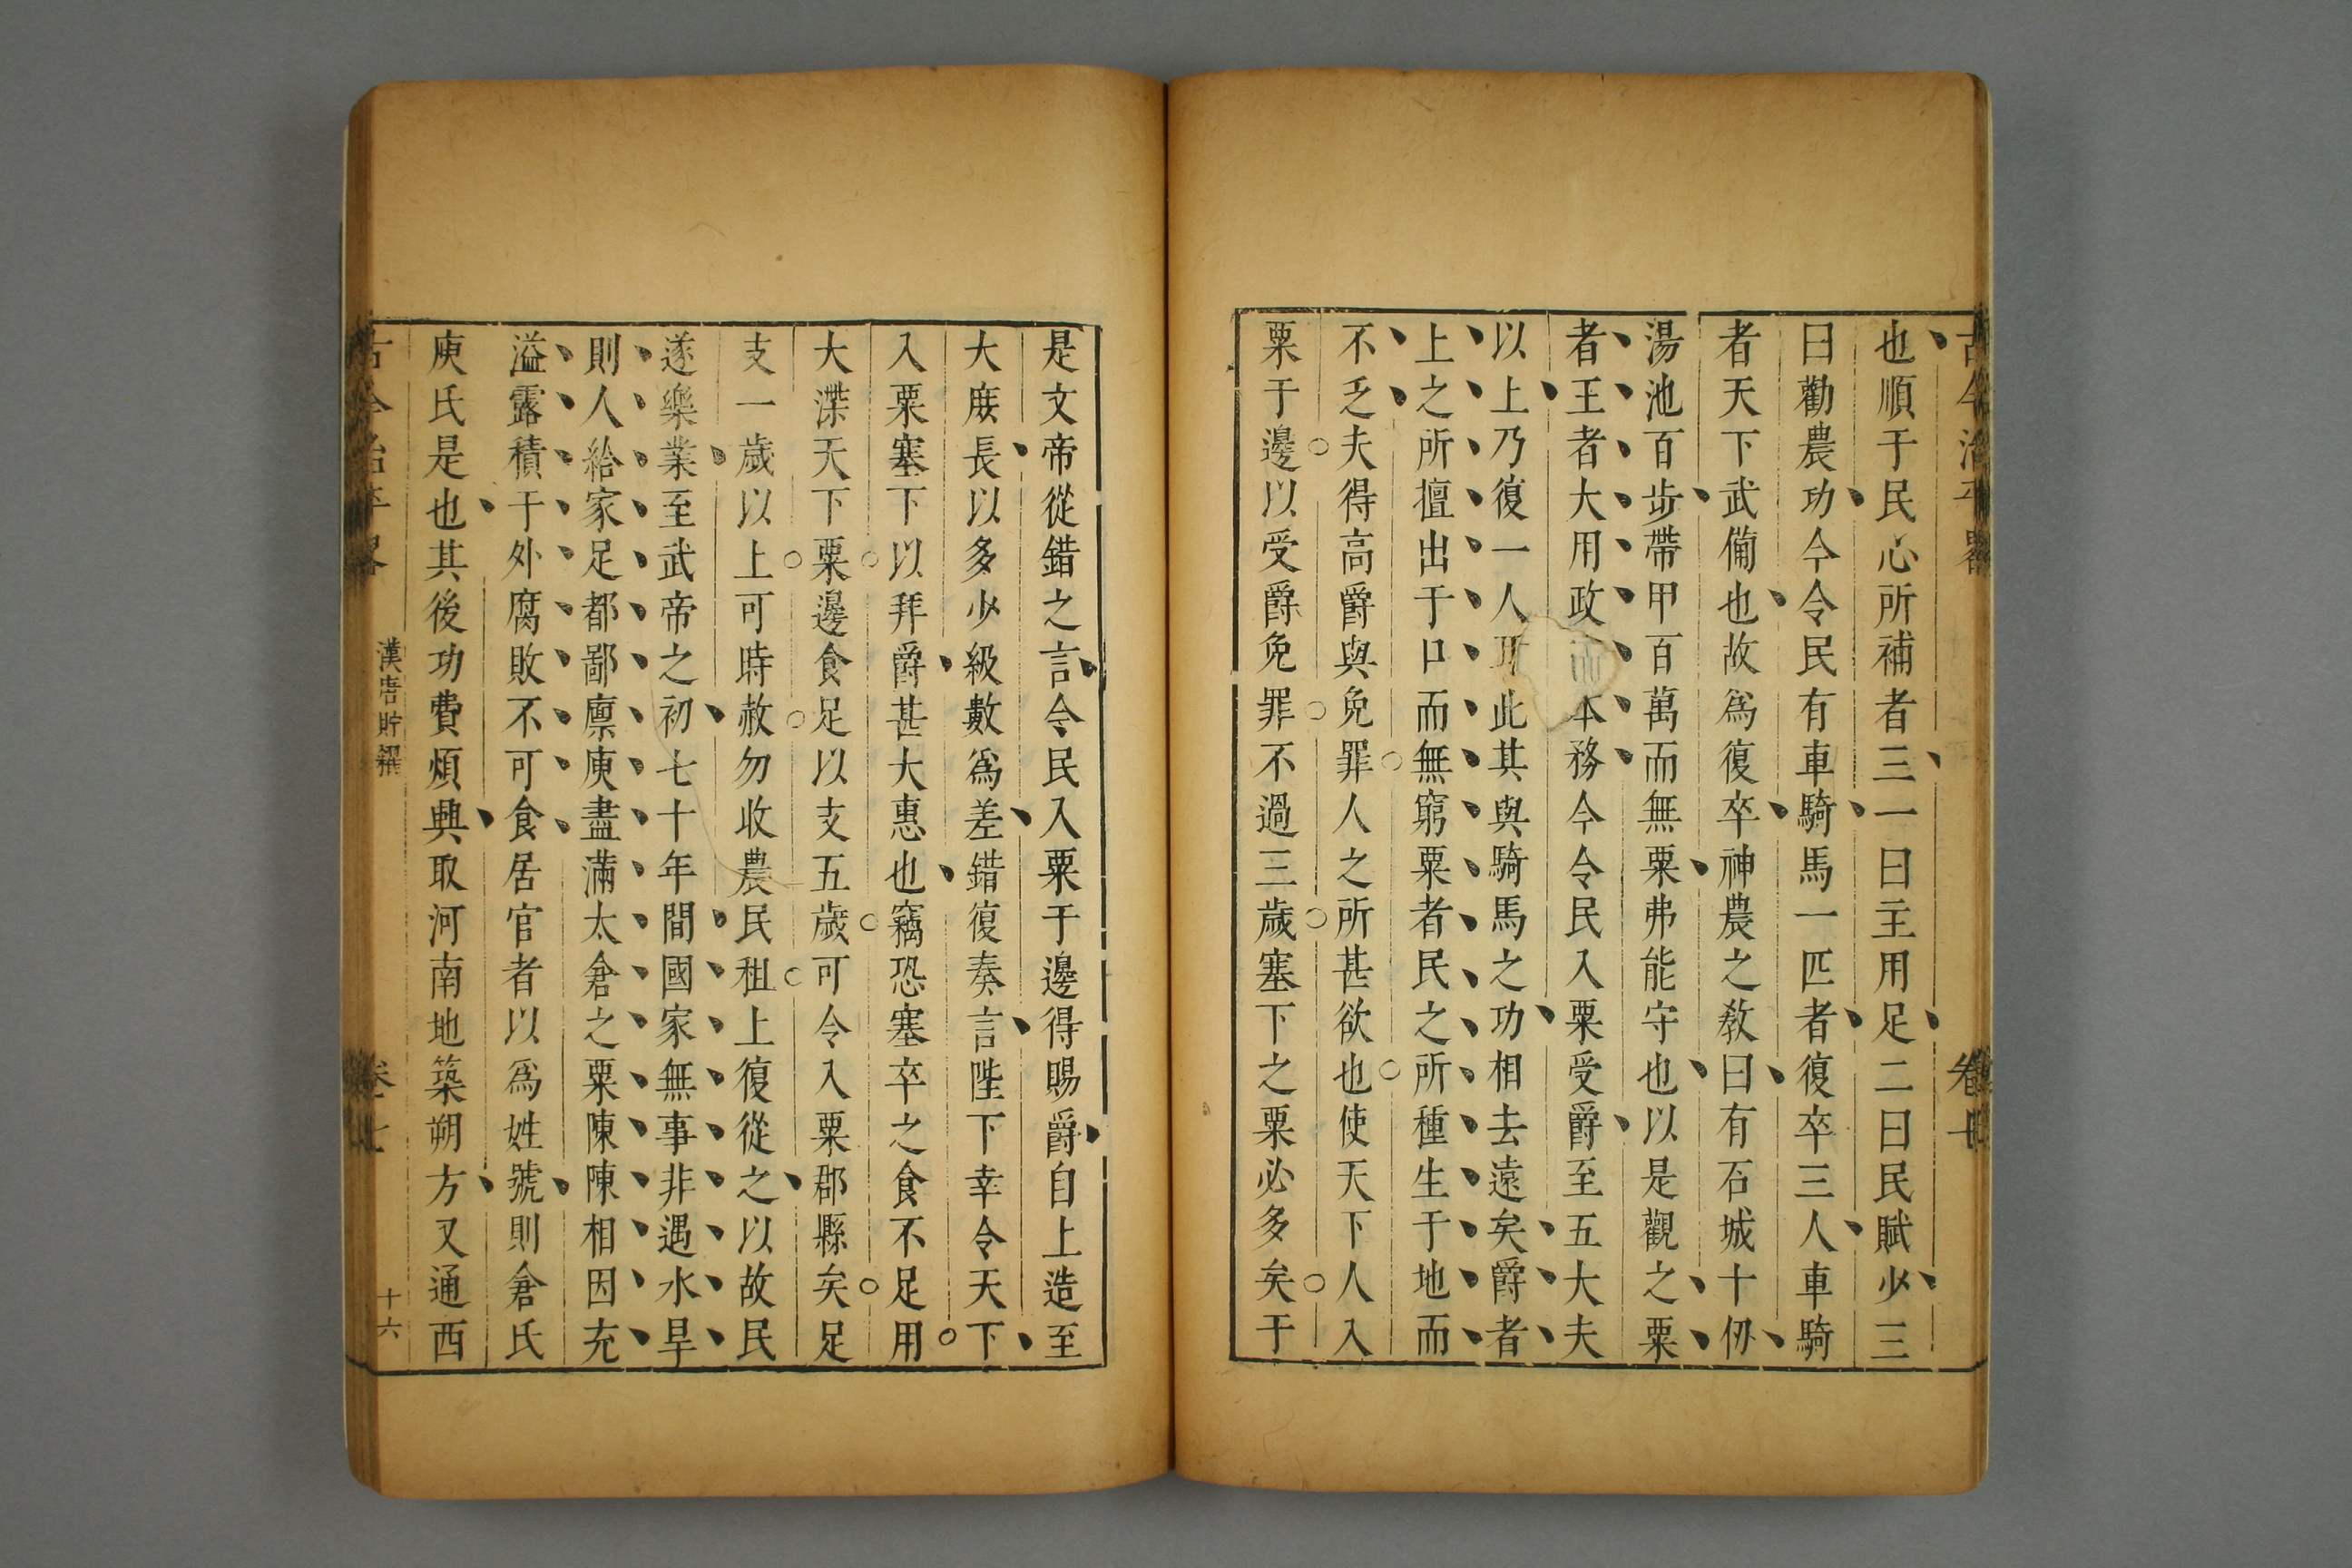 也順于民心所補者三一曰主用足二曰民賦少三
曰勸農功今令民有車騎馬一匹者復卒三人車騎
者天下武備也故爲復卒神農之敎曰有石城十仞
湯池百步帶甲百萬而無粟弗能守也以是觀之粟
者王者大用政本務今令民入粟受爵至五大夫
以上乃復一人耳此其與騎馬之功相去遠矣爵者
上之所擅出于口而無窮粟者民之所種生于地而
不乏夫得高爵與免罪人之所甚欲也使天下人入
粟于邊以受爵免罪不過三歲塞下之粟必多矣于
是文帝從錯之言令民入粟于邊得賜爵自上造至
大庶長以多少級數爲差錯復奏言陛下幸令天下
入粟塞下以拜爵甚大惠也竊恐塞卒之食不足用
大渫天下粟邊食足以支五歲可令入粟郡縣矣足
支一歲以上可時赦勿收農民租上復從之以故民
遂樂業至武帝之初七十年間國家無事非遇水旱
則人給家足都鄙廪庾盡滿太倉之粟陳陳相因充
溢露積于外腐敗不可食居官者以爲姓號則倉氏
庾氏是也其後功費煩興取河南地築朔方又通西
古今治平畧
漢唐貯糴
十六